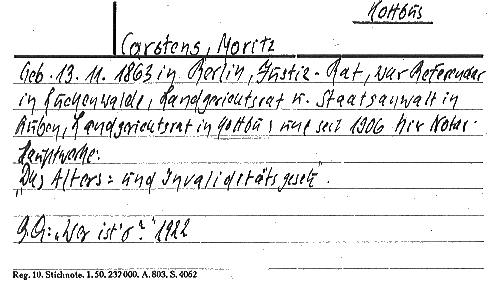 Kottbus
Carstens, Moritz
Geb. 13. 11. 1863 in Berlin, Justiz-Rat, war Referendar
in Luckenwalde, Landgerichtsrat u. Staatsanwalt in
Guben, Landgerichtsrat in Cottbus und seit 1906 hier Notar.
Hauptwerke:
"Das Alters= und Invaliditätsgesetz".
B.Q: "Wer ist's?" 1922
Reg. 10. Stichnote. 1. 50. 237000. A. 803. S. 4062